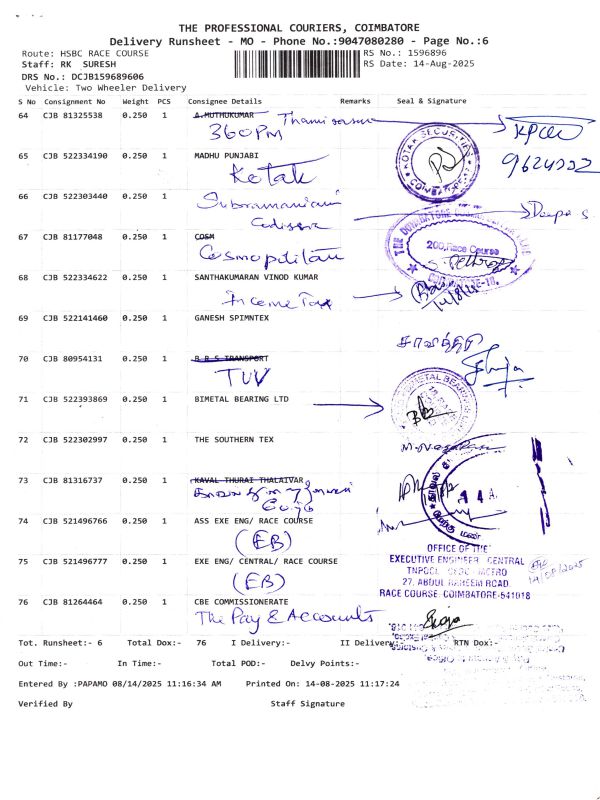 THE PROFESSIONAL COURIERS, COIMBATORE
Delivery Runsheet - MO - Phone No.:9047080280 - Page No.:6
Route: HSBC RACE COURSE RS No.: 1596896
Staff: RK SURESH RS Date: 14-Aug-2025
DRS No.: DCJB159689606
Vehicle: Two Wheeler Delivery
S No Consignment No Weight PCS Consignee Details Remarks Seal & Signature
64 CJB 81325538 0.250 1 A.MUTHUKUMAR
360PM
65 CJB 522334190 0.250 1 MADHU PUNJABI
Kotak
KOTAK SECURITIES
COIMBATORE
66 CJB 522303440 0.250 1
Subramaniam
Deepa S
67 CJB 81177048 0.250 1 COSM
Cosmopolitan
200, Race Course
68 CJB 522334622 0.250 1 SANTHAKUMARAN VINOD KUMAR
Income Tax
69 CJB 522141460 0.250 1 GANESH SPIMNTEX
70 CJB 80954131 0.250 1 B R S TRANSPORT
TUV
71 CJB 522393869 0.250 1 BIMETAL BEARING LTD
72 CJB 522302997 0.250 1 THE SOUTHERN TEX
73 CJB 81316737 0.250 1 KAVAL THURAI THALAIVAR
74 CJB 521496766 0.250 1 ASS EXE ENG/ RACE COURSE
(EB)
OFFICE OF THE
75 CJB 521496777 0.250 1 EXE ENG/ CENTRAL/ RACE COURSE
(EB)
EXECUTIVE ENGINEER CENTRAL
27, ABDUL KAREEM ROAD,
RACE COURSE, COIMBATORE-641018
76 CJB 81264464 0.250 1 CBE COMMISSIONERATE
The Pay & Accounts
Tot. Runsheet:- 6 Total Dox:- 76 I Delivery:- II Delivery:- RTN Dox:-
Out Time:- In Time:- Total POD:- Delvy Points:-
Entered By :PAPAMO 08/14/2025 11:16:34 AM Printed On: 14-08-2025 11:17:24
Verified By Staff Signature